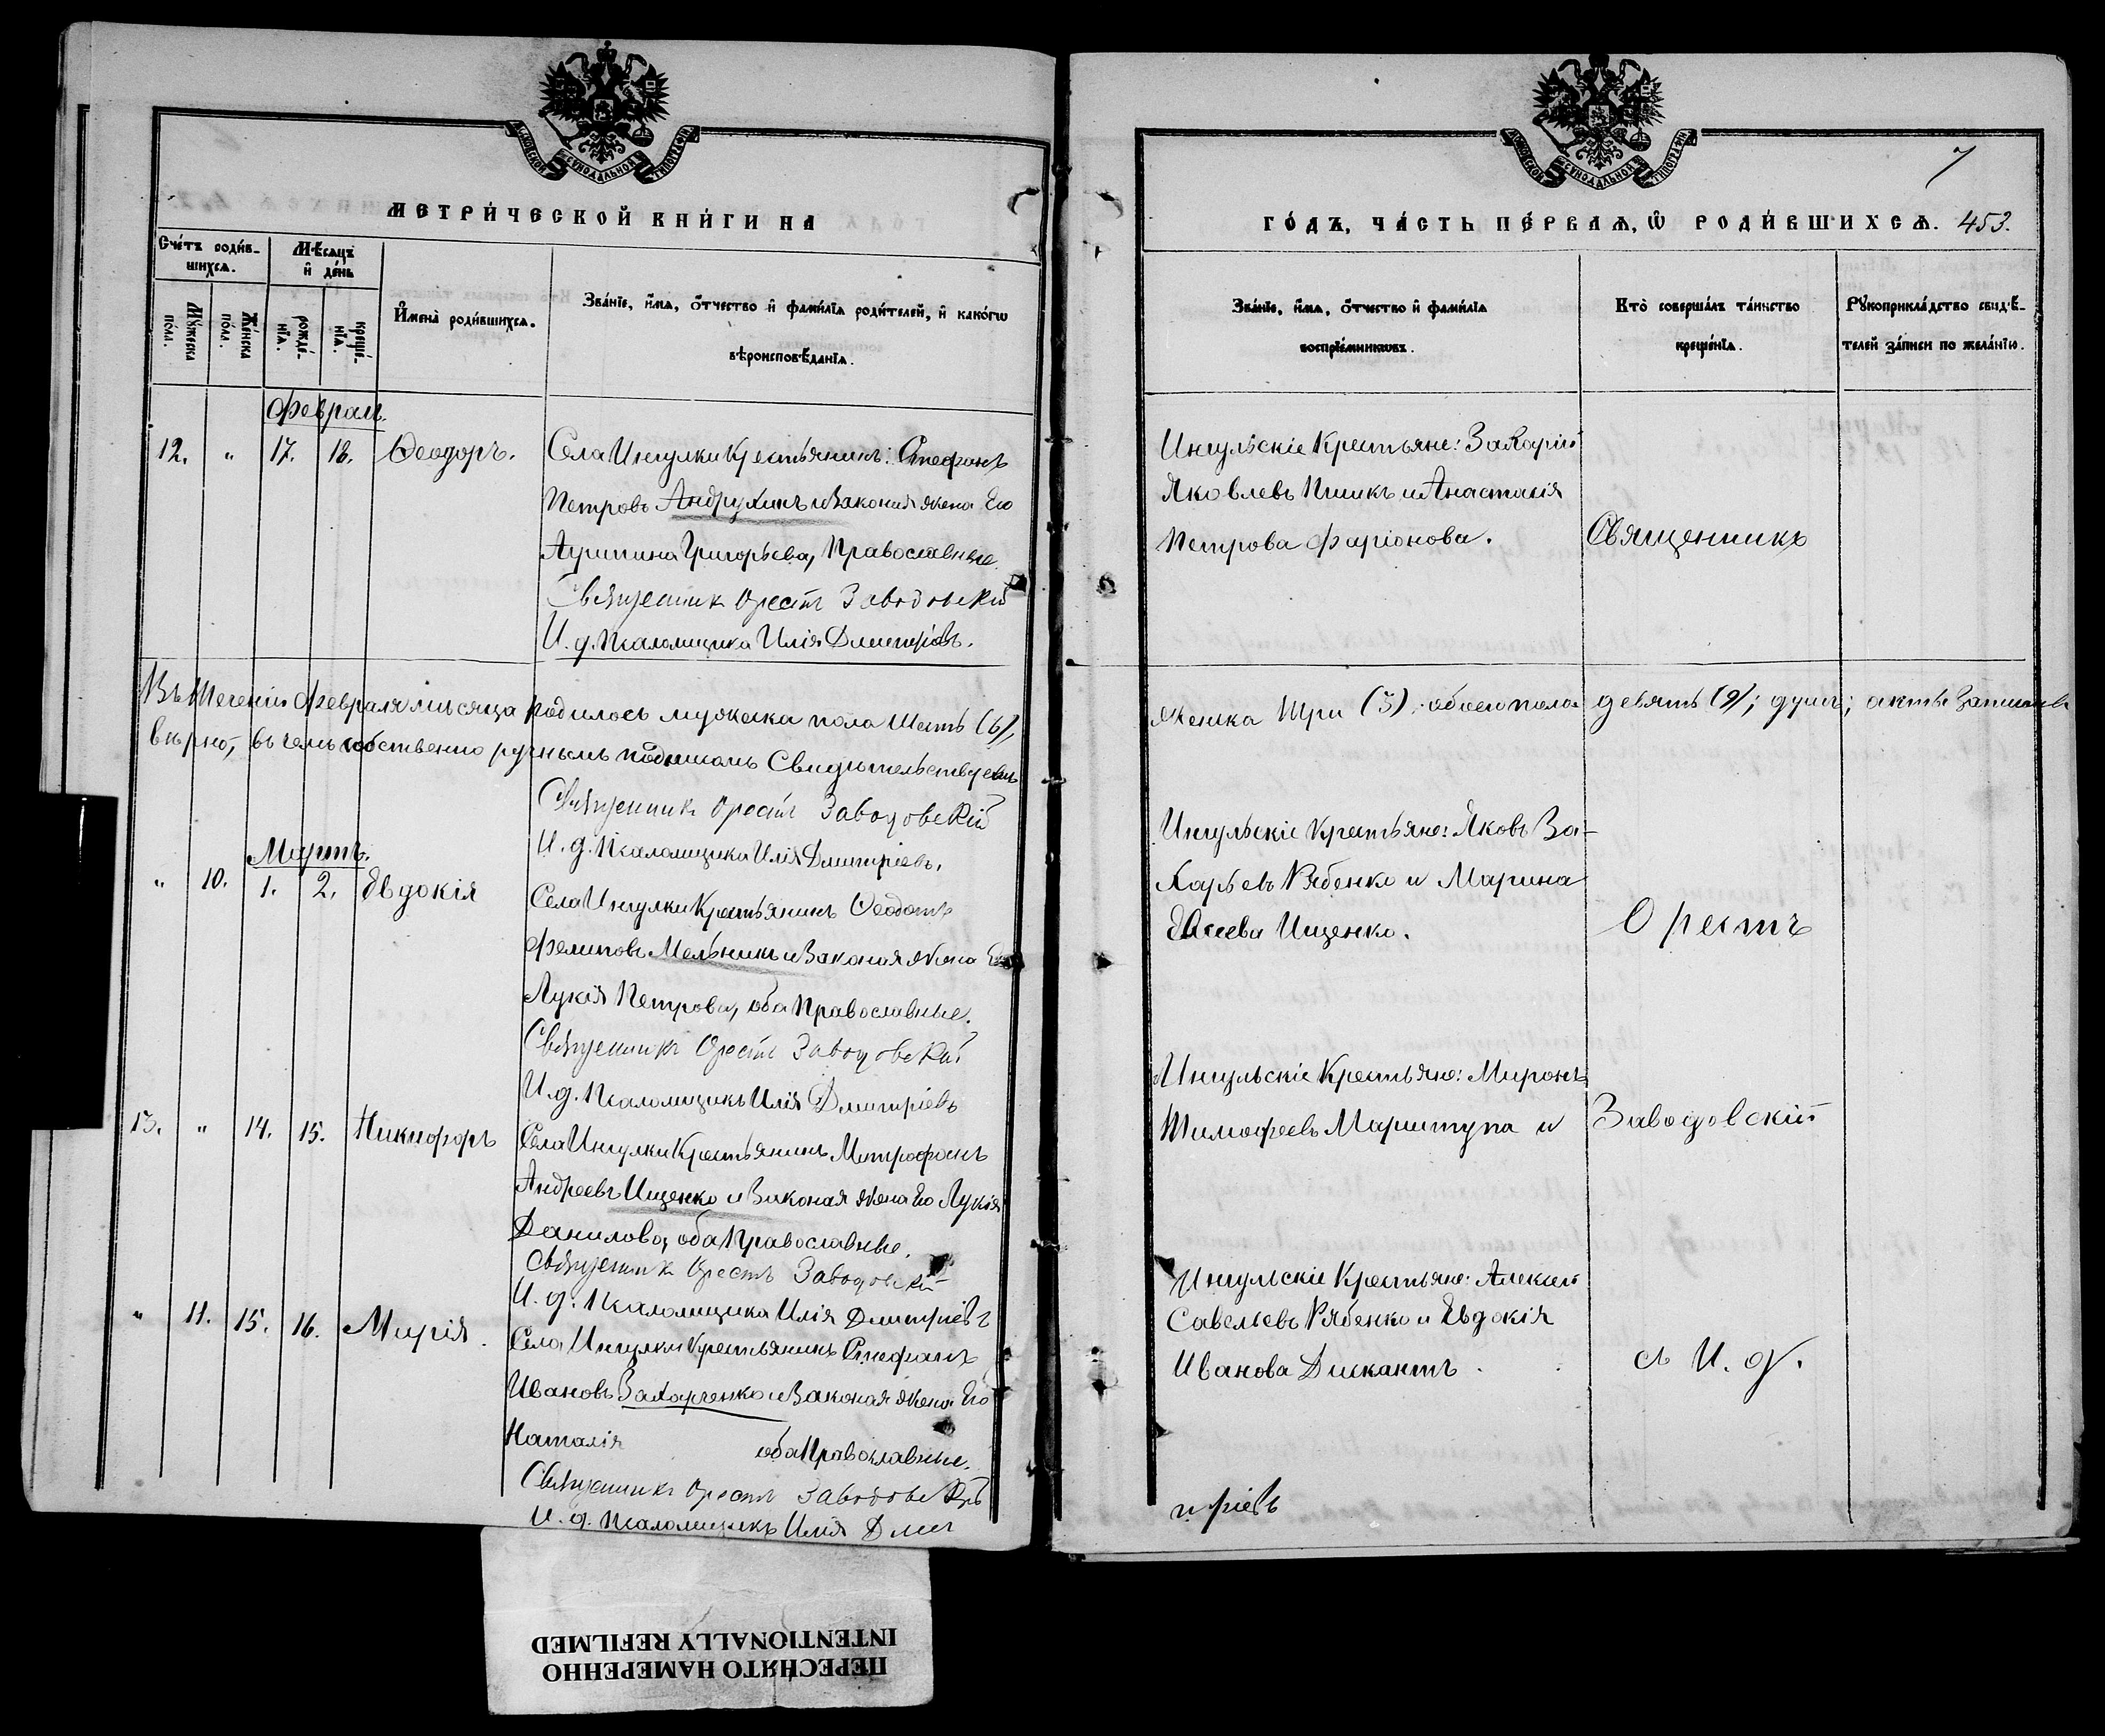 МОСКОВСКОЙ СУНОДАЛЬНОЙ ТИПОГРАФІИ
МЕТРИ́ЧЕСКОЙ КНИ́ГИ НА
Сче́тъ роди́в-
шихсѧ.
Мѣ́сяцъ
и҆ де́нь
Мꙋ́жеска
по́ла.
Же́нска
по́ла.
рожде́-
нїѧ.
креще́-
нїѧ.
И҆мена̀ роди́вшихсѧ.
Зва́нїе, и҆́мѧ, ѻ҆́тчество и҆ фами́лїѧ роди́телей, и҆ како́гѡ
вѣроисповѣ́данїѧ.
Февраль.
12. " 17. 18. Ѳеодоръ.
Села Ингулки Крестьянинъ: Стефанъ
Петровъ Андрухинъ и Законая жена Его
Агрипина Григорьева, Православные.
Священникъ Орестъ Заводовскій
И. д. Псаломщика Илія Дмитріевъ.
Въ теченіи Февраля мѣсяца родилось мужеска пола шесть (6),
вѣрно, въ чемъ собственно ручнымъ подписомъ Свидѣтельствуемъ
Священникъ Орестъ Заводовскій
И. д. Псаломщика Илія Дмитріевъ.
Мартъ.
" 10. 1. 2. Евдокія
Села Ингулки Крестьянинъ Ѳеодотъ
Филиповъ Мельникъ и Законая жена Его
Лукія Петрова, оба Православные.
Священникъ Орестъ Заводовскій
И. д. Псаломщикъ Илія Дмитріевъ
13. " 14. 15. Никифоръ
Села Ингулки Крестьянинъ Митрофанъ
Андреевъ Ищенко и Законая жена Его Лукія
Данилова, оба Православные.
Священникъ Орестъ Заводовскій
И. д. Псаломщика Илія Дмитріевъ
" 11. 15. 16. Марія.
Села Ингулки Крестьянинъ Стефанъ
Ивановъ Захарченко и Законая жена Его
Наталія оба Православные.
Священникъ Орестъ Заводовскій
И. д. Псаломщикъ Илія Дми
МОСКОВСКОЙ СУНОДАЛЬНОЙ ТИПОГРАФІИ
7
ГО́ДЪ, ЧА́СТЬ ПЕ́РВАѦ, Ѡ҆ РОДИ́ВШИХСѦ. 453.
Зва́нїе, и҆́мѧ, ѻ҆́тчество и҆ фами́лїѧ
воспрїе́мникѡвъ.
Кто̀ соверша́лъ та́инство
креще́нїѧ.
Рꙋкоприкла́дство свидѣ́-
телей за́писи по жела́нїю.
Ингульскіе Крестьяне: Захарій
Яковлевъ Пшикъ и Анастасія
Петрова Фаріонова.
Священникъ
женска три (3), обоего пола девять (9); душъ; акты записаны
Ингульскіе Крестьяне: Яковъ За-
харьевъ Рябенко и Марина
Евсеева Ищенко.
Орестъ
Ингульскіе Крестьяне: Миронъ
Тимофеевъ Маритупа и
Заводовскій
Ингульскіе Крестьяне: Алексей
Савельевъ Рябенко и Евдокія
Иванова Дискантъ.
съ И. д.
тріевъ
ПЕРЕСНЯТО НАМЕРЕННО
INTENTIONALLY REFILMED